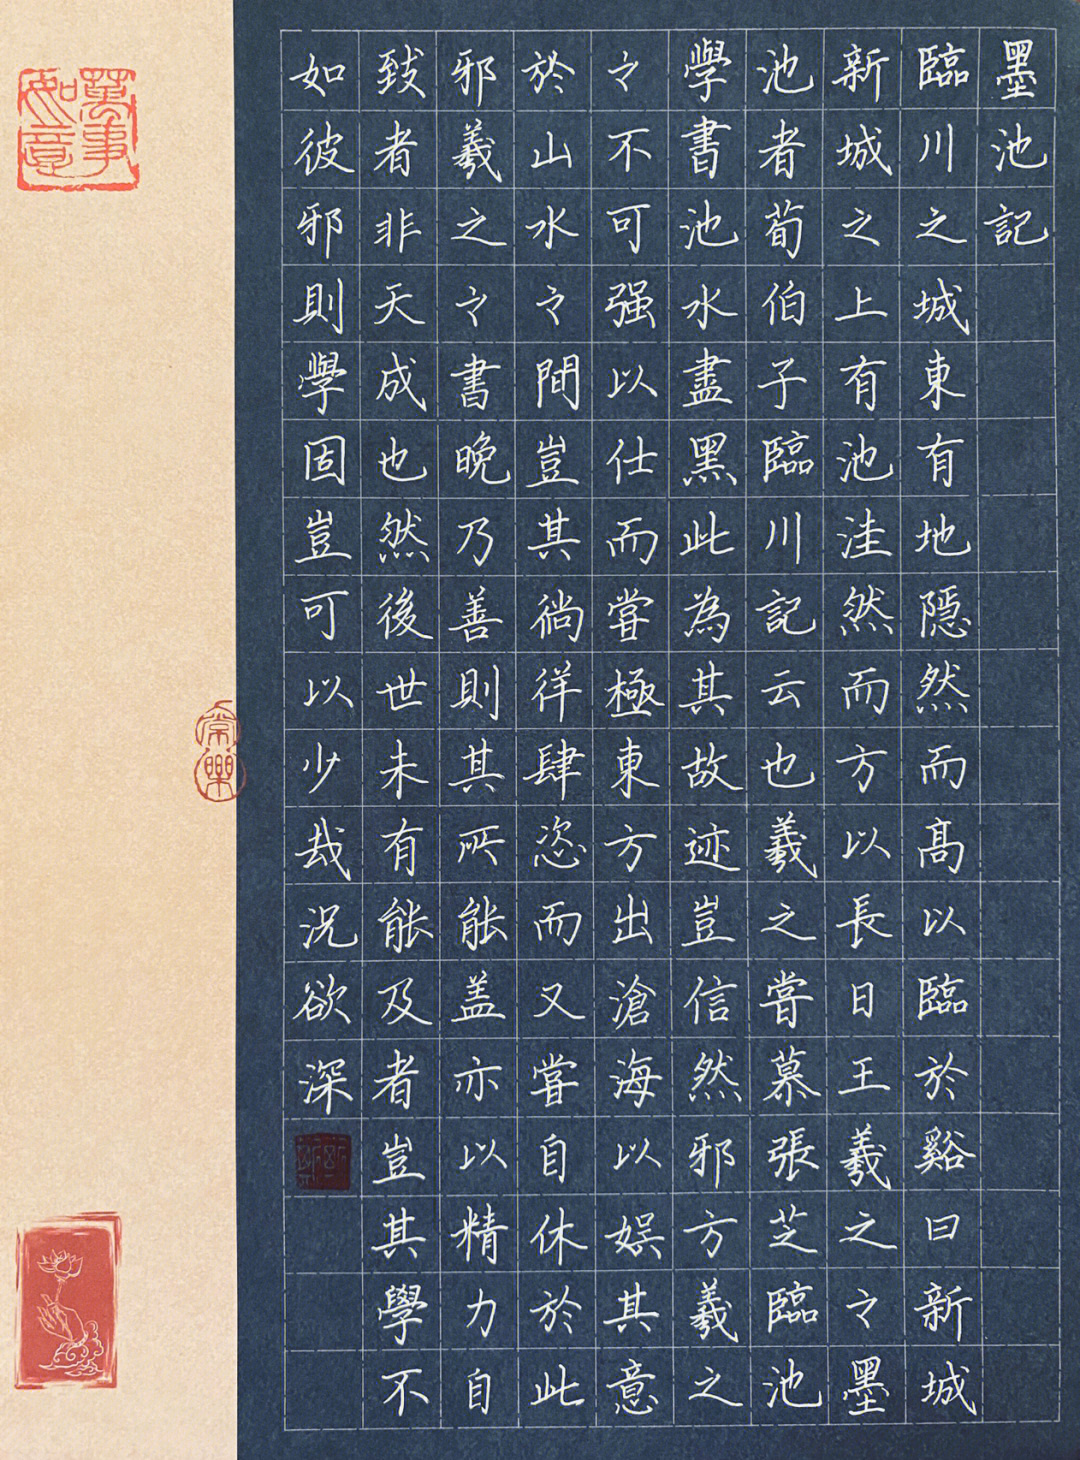 墨池記
臨川之城東有地隱然而高以臨於谿曰新城
新城之上有池洼然而方以長日王羲之々墨
池者荀伯子臨川記云也羲之嘗慕張芝臨池
學書池水盡黑此為其故迹豈信然邪方羲之
々不可强以仕而嘗極東方出滄海以娛其意
於山水々間豈其徜徉肆恣而又嘗自休於此
邪羲之々書晚乃善則其所能盖亦以精力自
致者非天成也然後世未有能及者豈其學不
如彼邪則學固豈可以少哉况欲深
常樂
萬事
如意